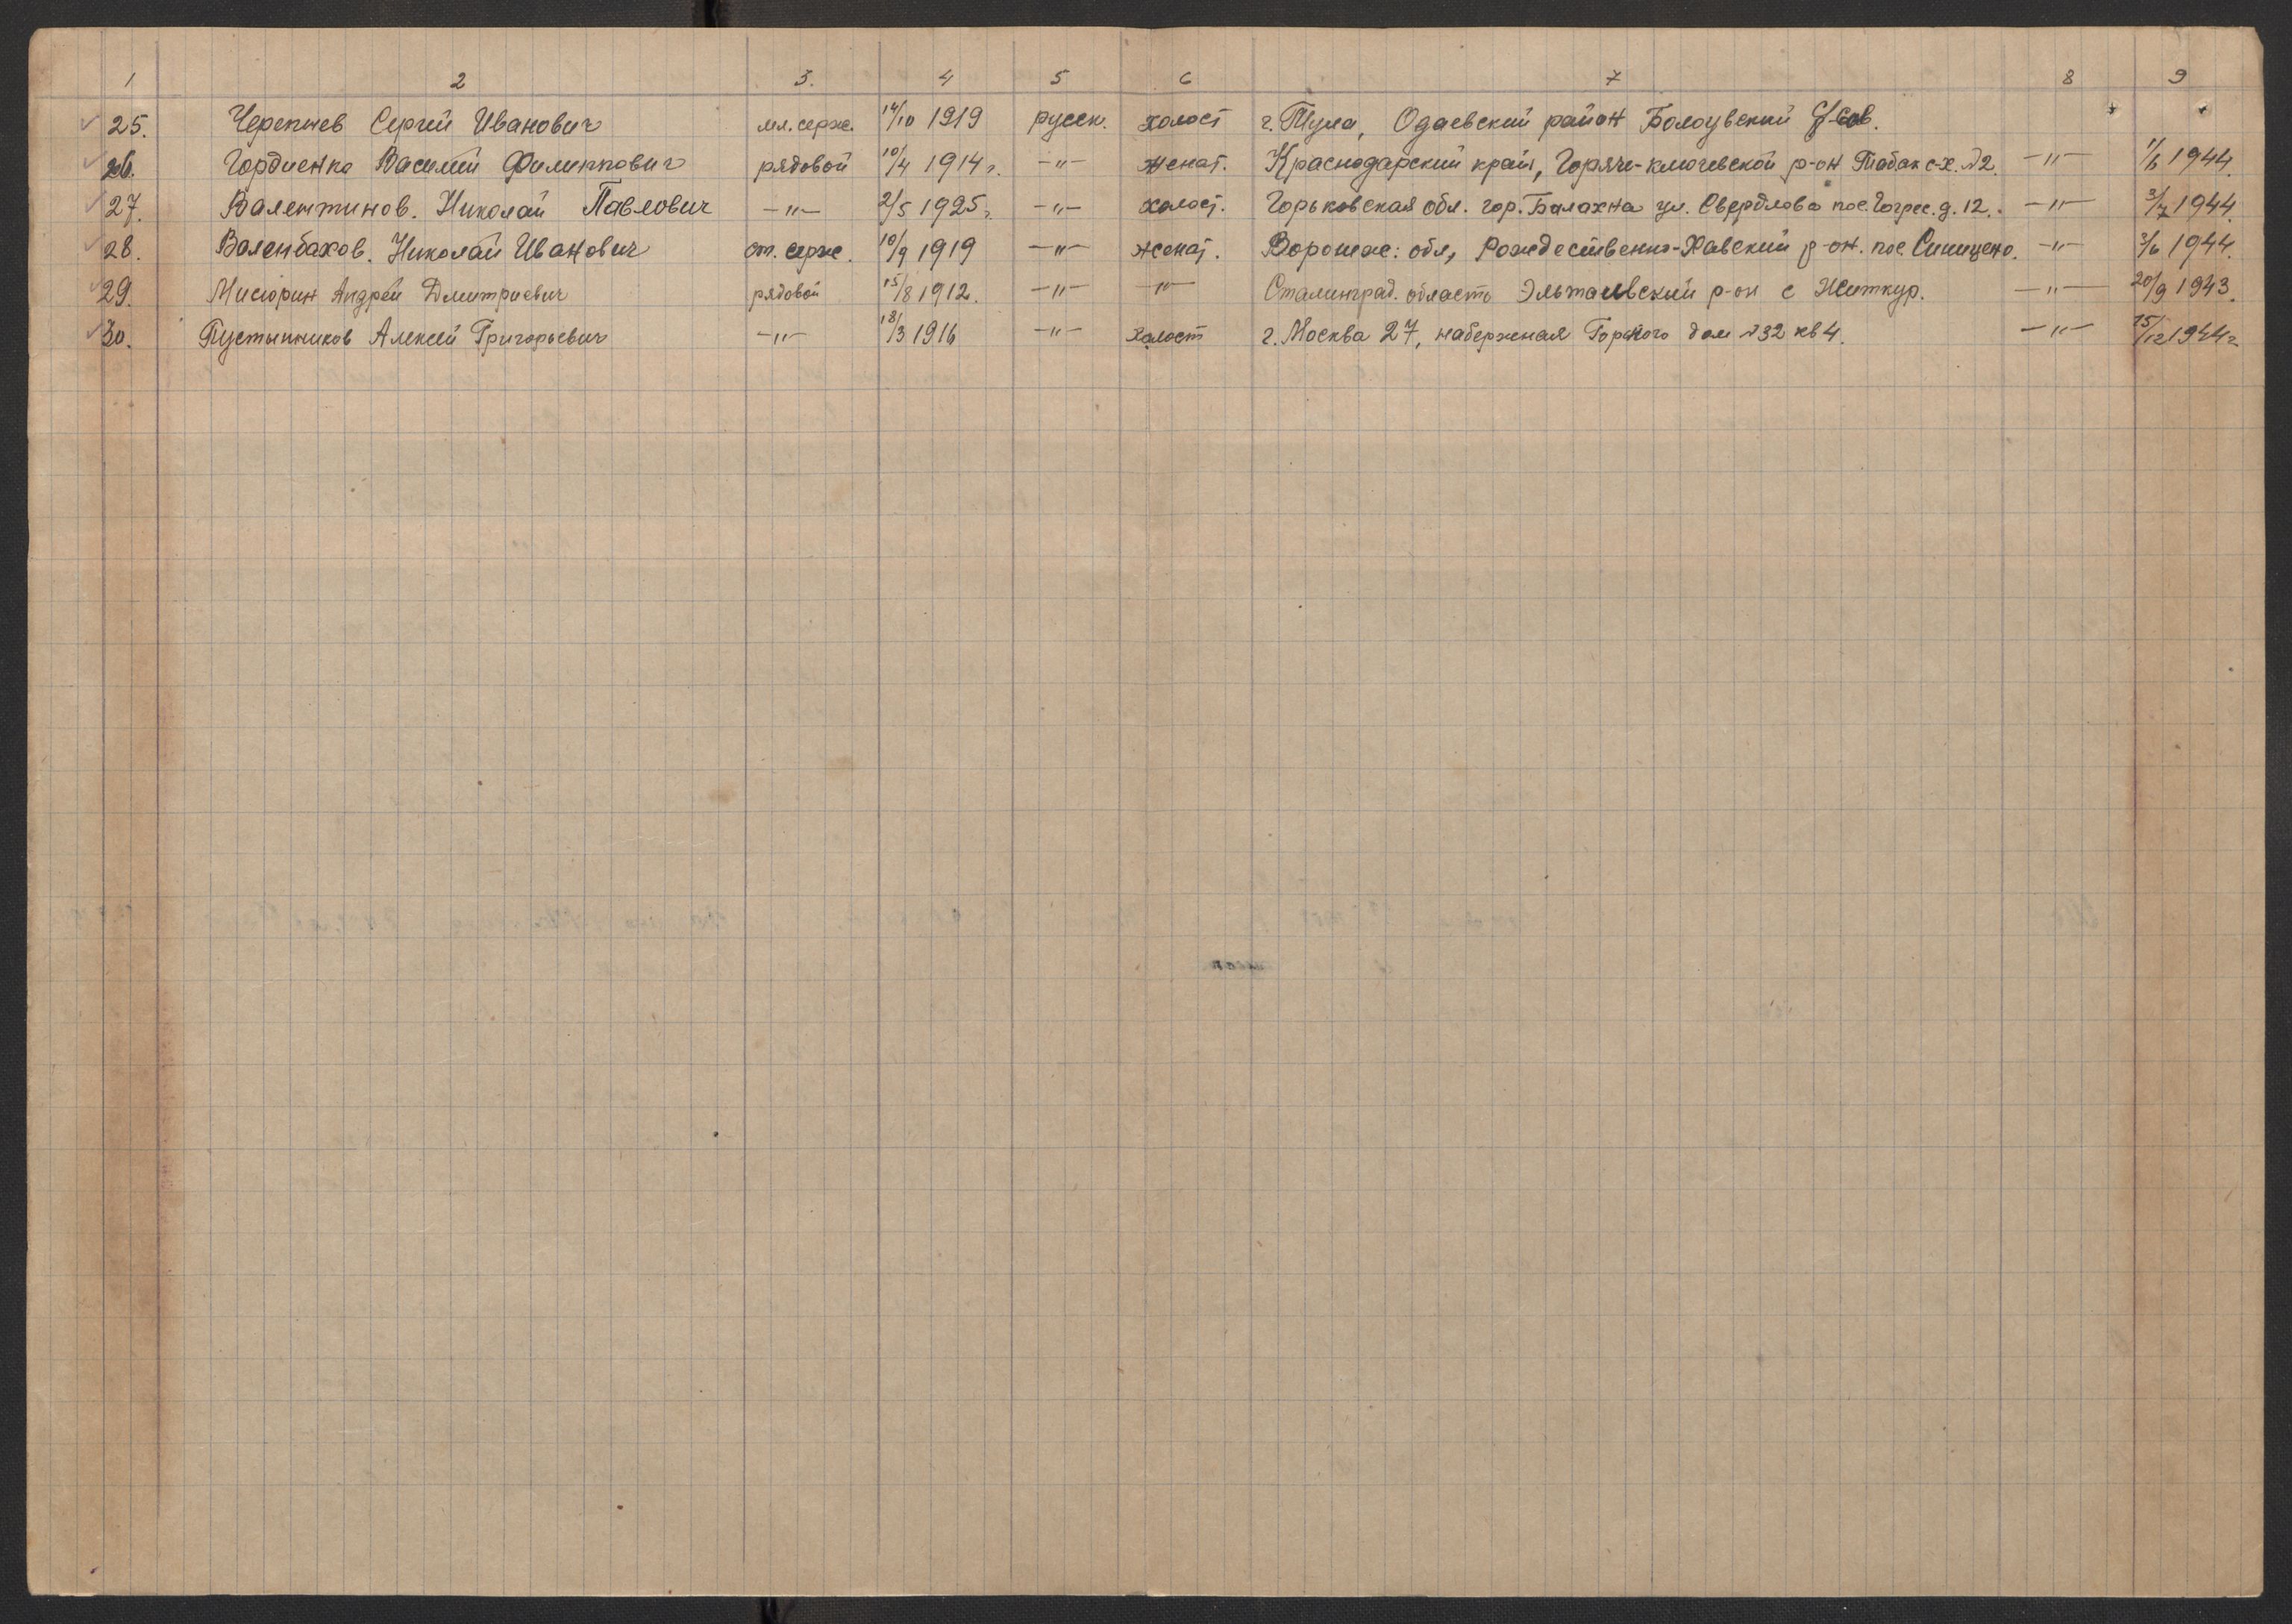 1 2 3. 4 5 6 7 8 9
25. Черепнев Сергей Иванович мл. серж. 14/10 1919 русск. холост г. Тула, Одаевский район Болоувский
26. Гордиенко Василий Филиппович рядовой 10/4 1914 г. -"- женат. Краснодарский край, Горяче-ключевской р-он Табак с-х. №2. -"- 1/6 1944.
27. Валентинов. Николай Павлович -"- 2/5 1925 г. -"- холост. Горьковская обл. гор. Балахна ул. Свердлова пос. Гогрес. д. 12. -"- 3/7 1944.
28. Валенбахов. Николай Иванович ст. серж. 10/9 1919 -"- женат. Воронеж: обл, Рождественно-Хавский р-он. пос. Синицено. -"- 3/6 1944.
29. Мисюрин Андрей Дмитриевич рядовой 15/8 1912. -"- -"- Сталинград. область Эльтоновский р-он с Житкур. -"- 20/9 1943.
30. Пустынников Алексей Григорьевич -"- 18/3 1916 -"- холост г. Москва 27, набережная Горького дом №32 кв 4. -"- 15/12 1944 г.